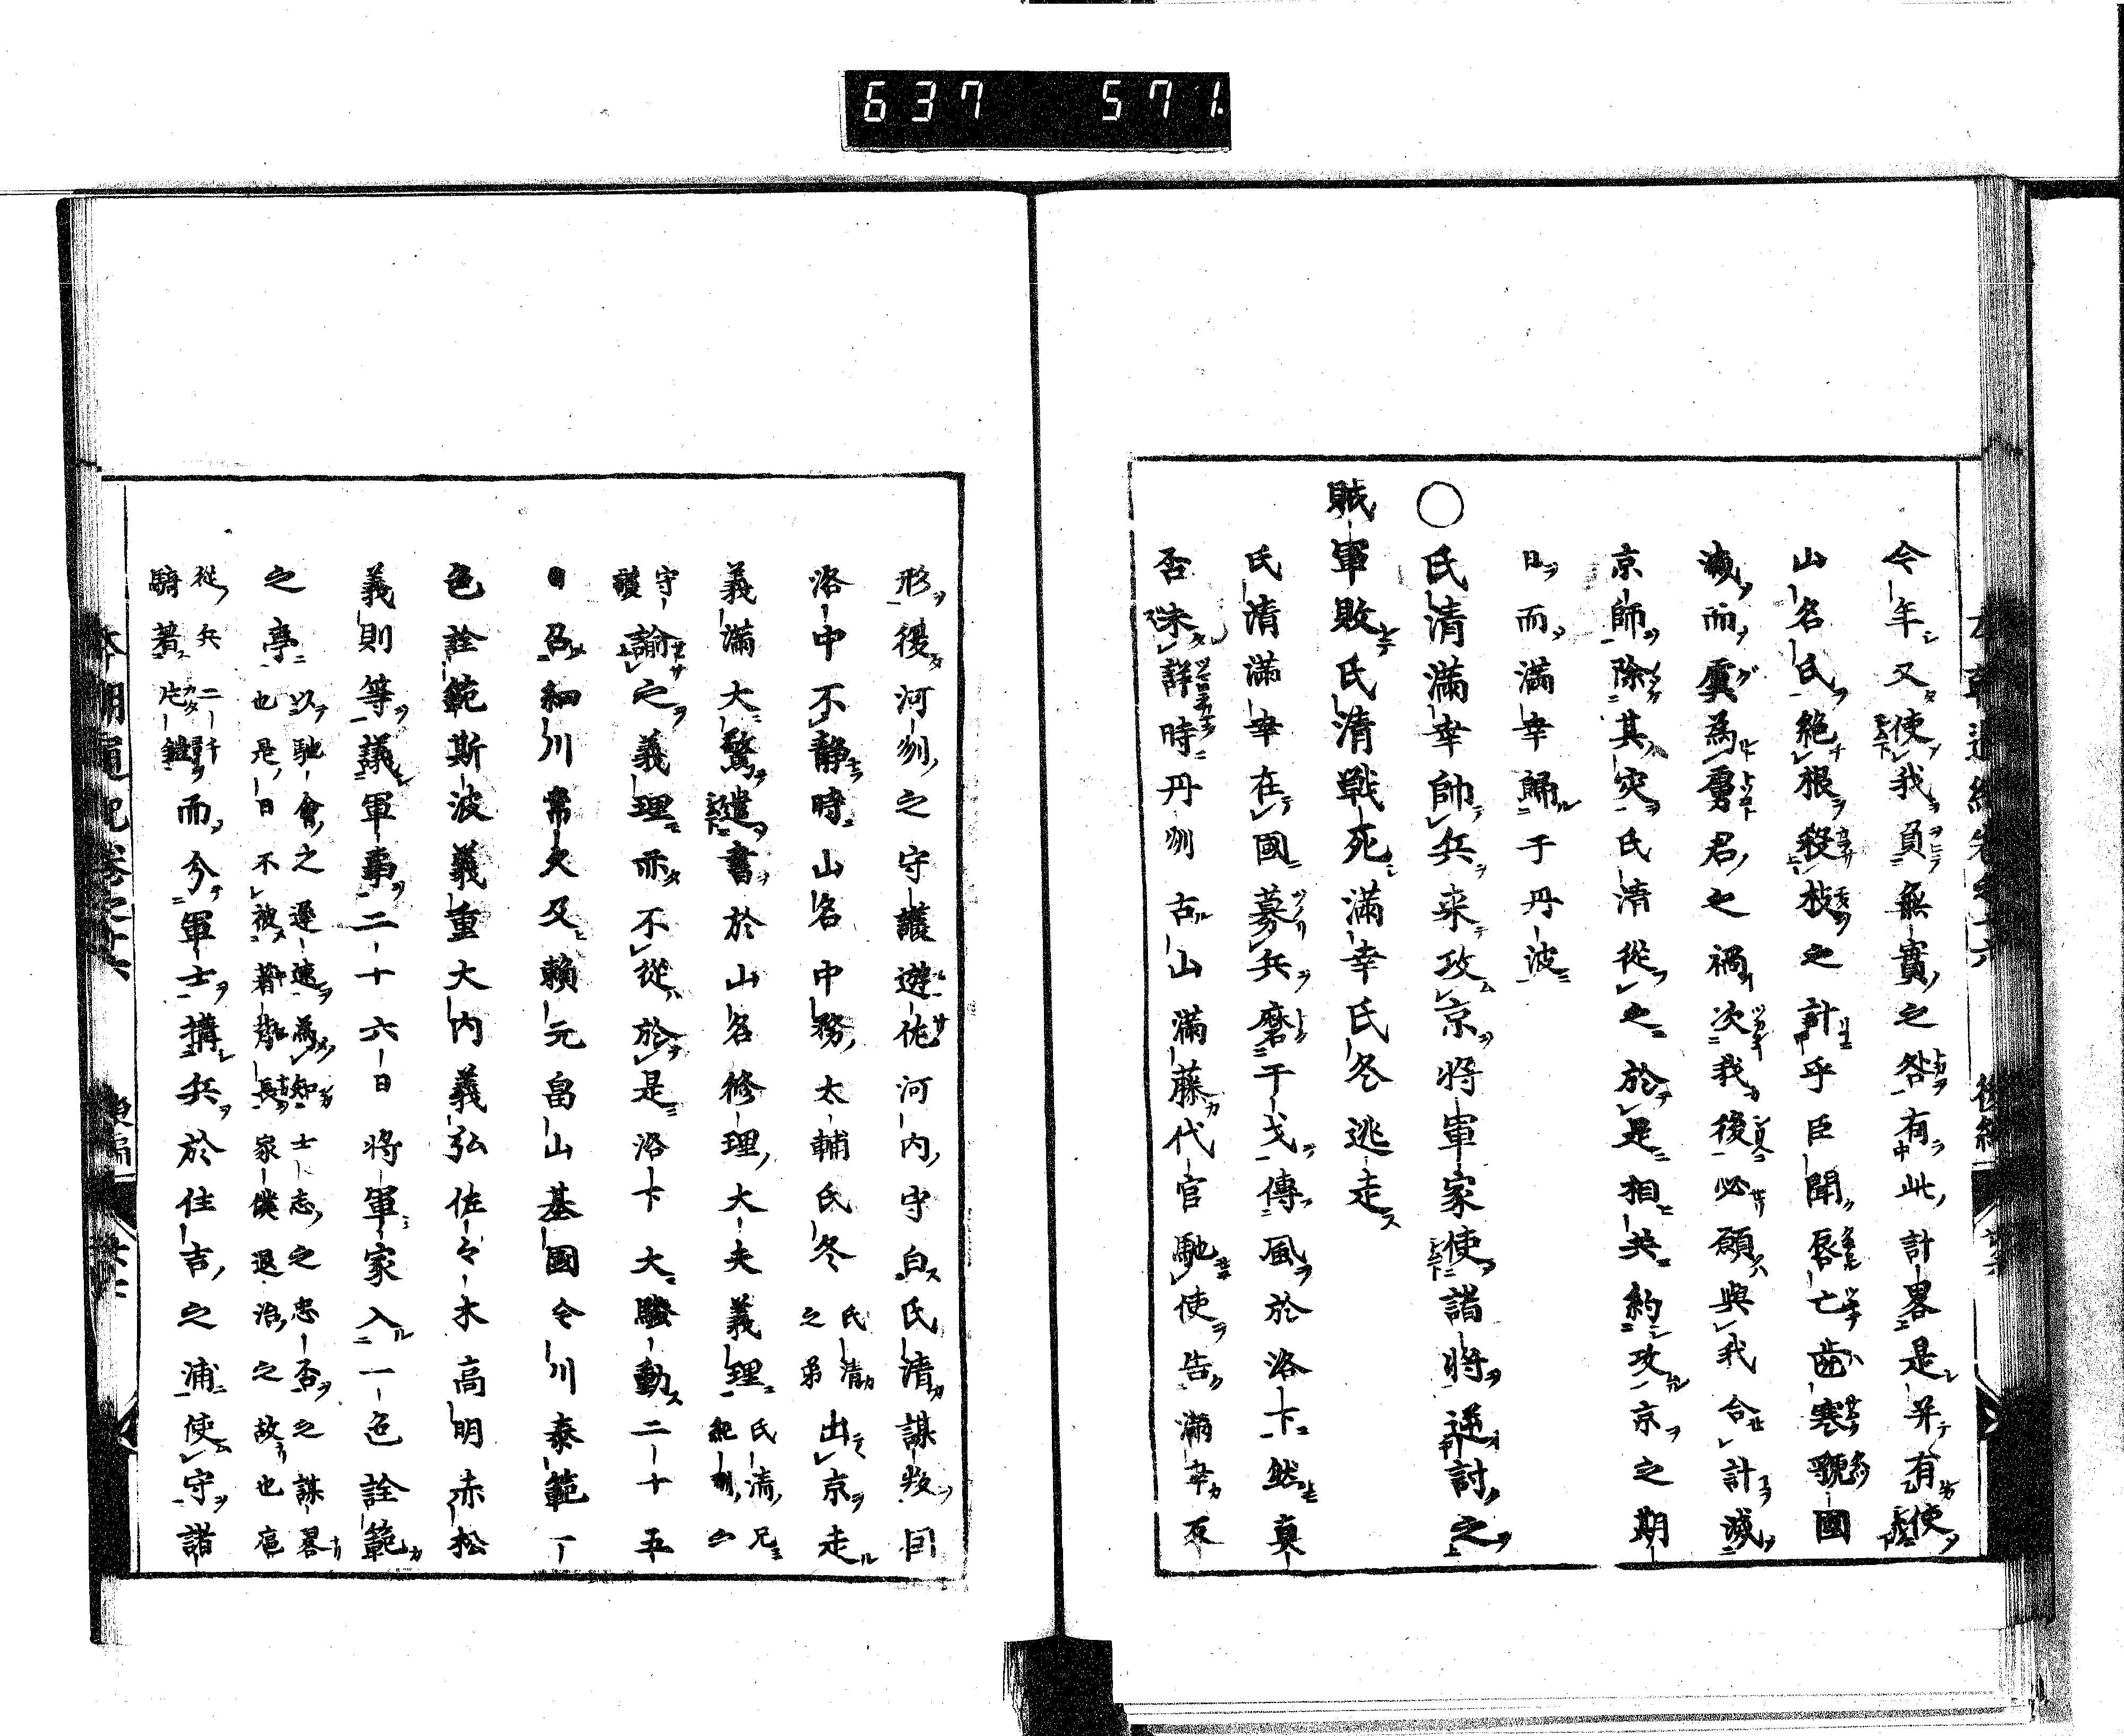 637 571.
今年又使我負無實之咎有此計畧是并有使
山名氏絶根殺枝之計乎臣聞唇亡齒寒虢國
滅而虞為虜君之禍次我後必願與我合計滅
京師除其灾氏清從之於是相共約攻京之期
日而滿幸歸于丹波
○氏清滿幸帥兵来攻京將軍家使諸將逆討之
賊軍敗氏清戰死滿幸氏冬逃走
氏清滿幸在國募兵磨干戈傳風於洛下然真
否未詳時丹州古山滿藤代官馳使告滿幸反
形復河州之守護遊佐河内守白氏清謀叛囙
洛中不静時山名中務太輔氏冬氏清之弟出京走
義滿大驚遣書於山名修理大夫義理氏清兄紀州
守護諭之義理亦不從於是洛下大騷動二十五
日召細川常久及頼元畠山基國今川泰範一
色詮範斯波義重大内義弘佐々木高明赤松
義則等議軍事二十六日將軍家入一色詮範
之亭以馳會之遲速為知士志之忠否之謀畧也是日不被着背長家僕退治之故也
從兵二千騎著片鎧而分軍士搆兵於住吉之浦使守諸